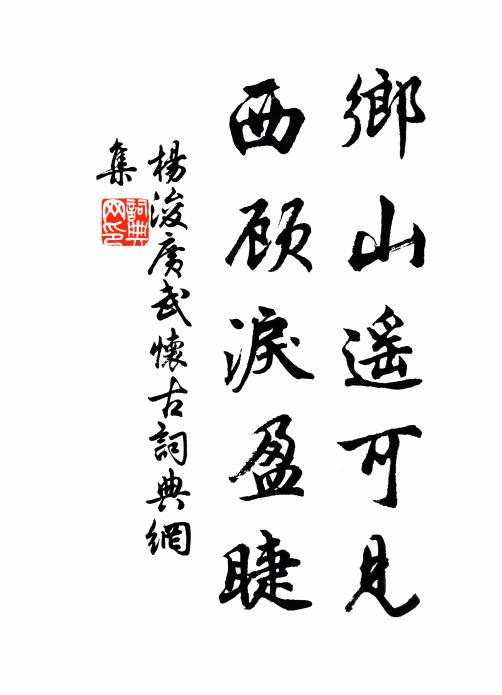 鄉山遥可見
西顾淚盈睫
楊浚廣武懷古詞典網
集
詞典
网印